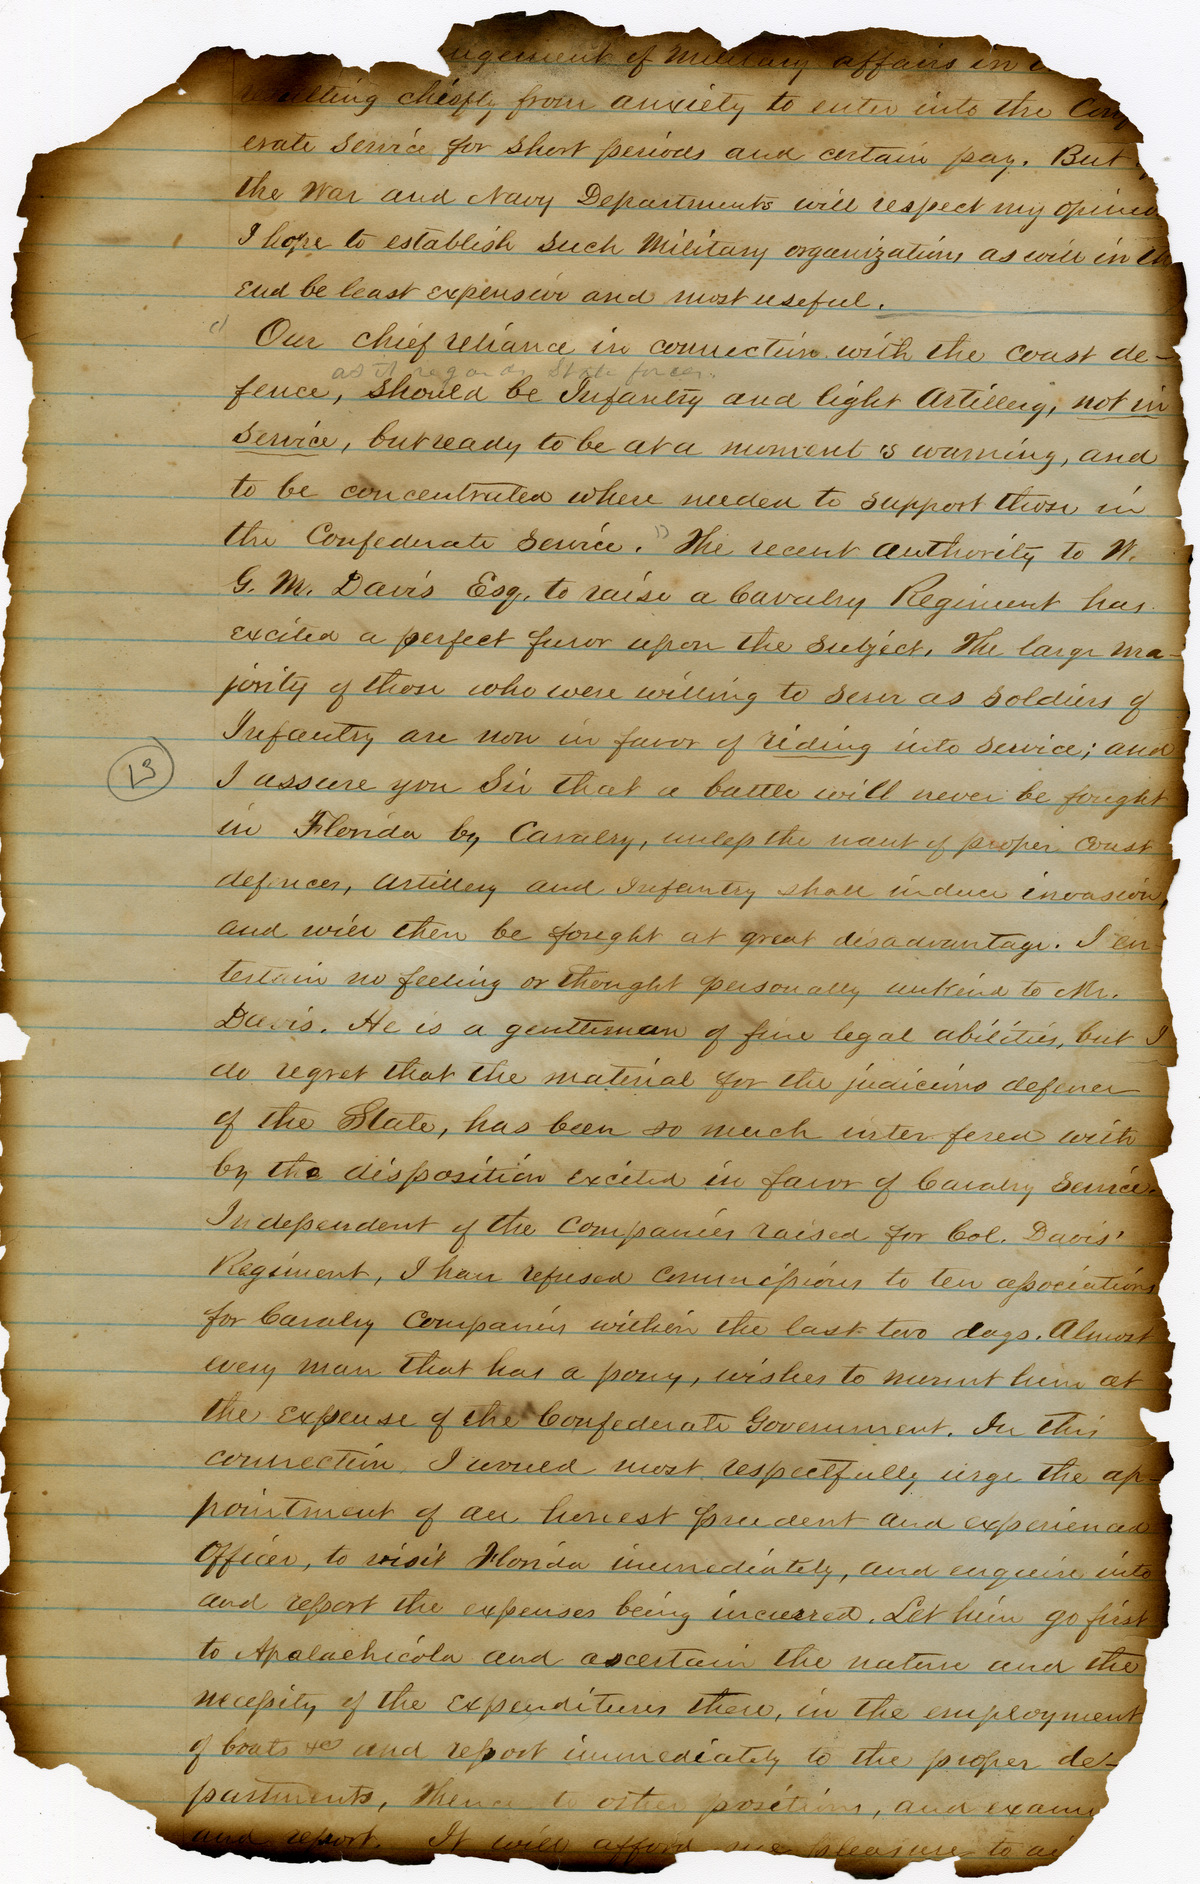 ngement of Military affairs in
resulting chiefly from anxiety to enter into the Conf
erate service for short periods and certain pay. But
the War and Navy Departments will respect my opinio
I hope to establish such Military organizations as will in th
end be least expensive and most useful.
Our chief reliance in connection with the coast de-
as it regards State forces.
fence, should be Infantry and light Artillery, not in
service, but ready to be at a moment's warning, and
to be concentrated where needed to support those in
the Confederate Service. The recent authority to W.
G. M. Davis Esq. to raise a Cavalry Regiment has
excited a perfect furor upon the subject. The large ma-
jority of those who were willing to serve as soldiers of
Infantry are now in favor of riding into service; and
I assure you Sir that a battle will never be fought
13
in Florida by Cavalry, unless the want of proper coast
defences, Artillery and Infantry shall induce invasion,
and will then be fought at great disadvantage. I en-
tertain no feeling or thought personally unkind to Mr.
Davis. He is a gentleman of fine legal abilities, but I
do regret that the material for the judicious defence
of the State, has been so much interfered with
by the disposition excited in favor of Cavalry Service.
Independent of the Companies raised for Col. Davis'
Regiment, I have refused commissions to ten associations
for Cavalry Companies within the last two days. Almost
every man that has a pony, wishes to mount him at
the expense of the Confederate Government. In this
connection, I would most respectfully urge the ap-
pointment of an honest prudent and experienced
Officer, to visit Florida immediately, and enquire into
and report the expenses being incurred. Let him go first
to Apalachicola and ascertain the nature and the
necessity of the expenditures there, in the employment
of boats &c and report immediately to the proper de-
partments, thence to other positions, and exami
and report. It will afford me pleasure to ai